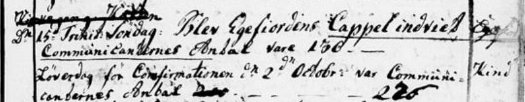 Dn 15 Trinit: Söndag: Blev Egefiordens Cappel indviet
Communicanternes Antal vare 136 —
Löverdag for Confirmationen dn 2dn Octobr: var Communi- Kind
canternes Antal 226